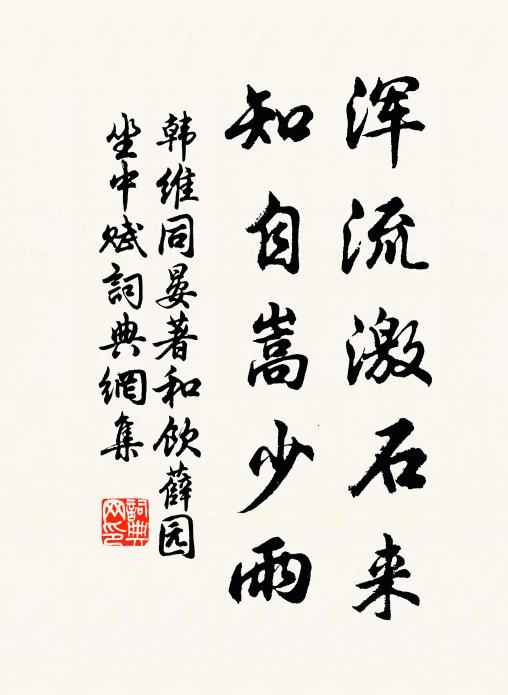 浑流激石来
知自嵩少雨
韩维同晏著和饮薛园
坐中赋詞典網集
詞典
网印